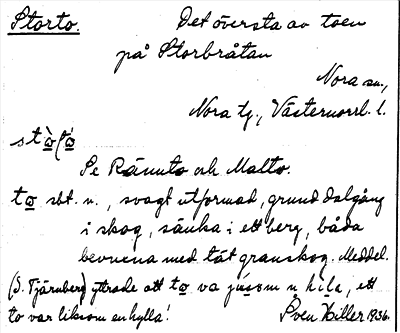 Storto. Det översta av toen
på Storbråtan
Nora sn.,
Nora tg., Västernorrl. l.
Se Rännto och Malto.
to sbt. n., svagt utformad, grund dalgång
i skog, sänka i ett berg, båda
bevuxna med tät granskog. Meddel.
(S. Tjärnberg) yttrade att to va jusom n hila, ett
to var liksom en hylla! Sven Hiller 1936.